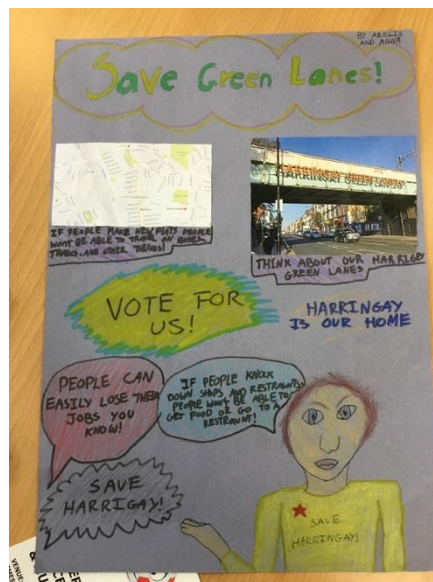 BY ARELIS
AND ANIYA
Save Green Lanes!
IF PEOPLE MAKE NEW FLATS PEOPLE
WONT BE ABLE TO TRAVEL ON BUSES,
TRAINS, AND OTHER THINGS!
HARRINGAY GREEN LANES
THINK ABOUT OUR HARRIGEY
GREEN LANES
VOTE FOR
US!
HARRINGAY
IS OUR HOME
PEOPLE CAN
EASILY LOSE THEIR
JOBS YOU
KNOW!
IF PEOPLE KNOCK
DOWN SHOPS AND RESTRAUNTS,
PEOPLE WONT BE ABLE TO
GET FOOD OR GO TO A
RESTRAUNT!
SAVE
HARRIGAY!
SAVE
HARRINGAY!
VENUE: